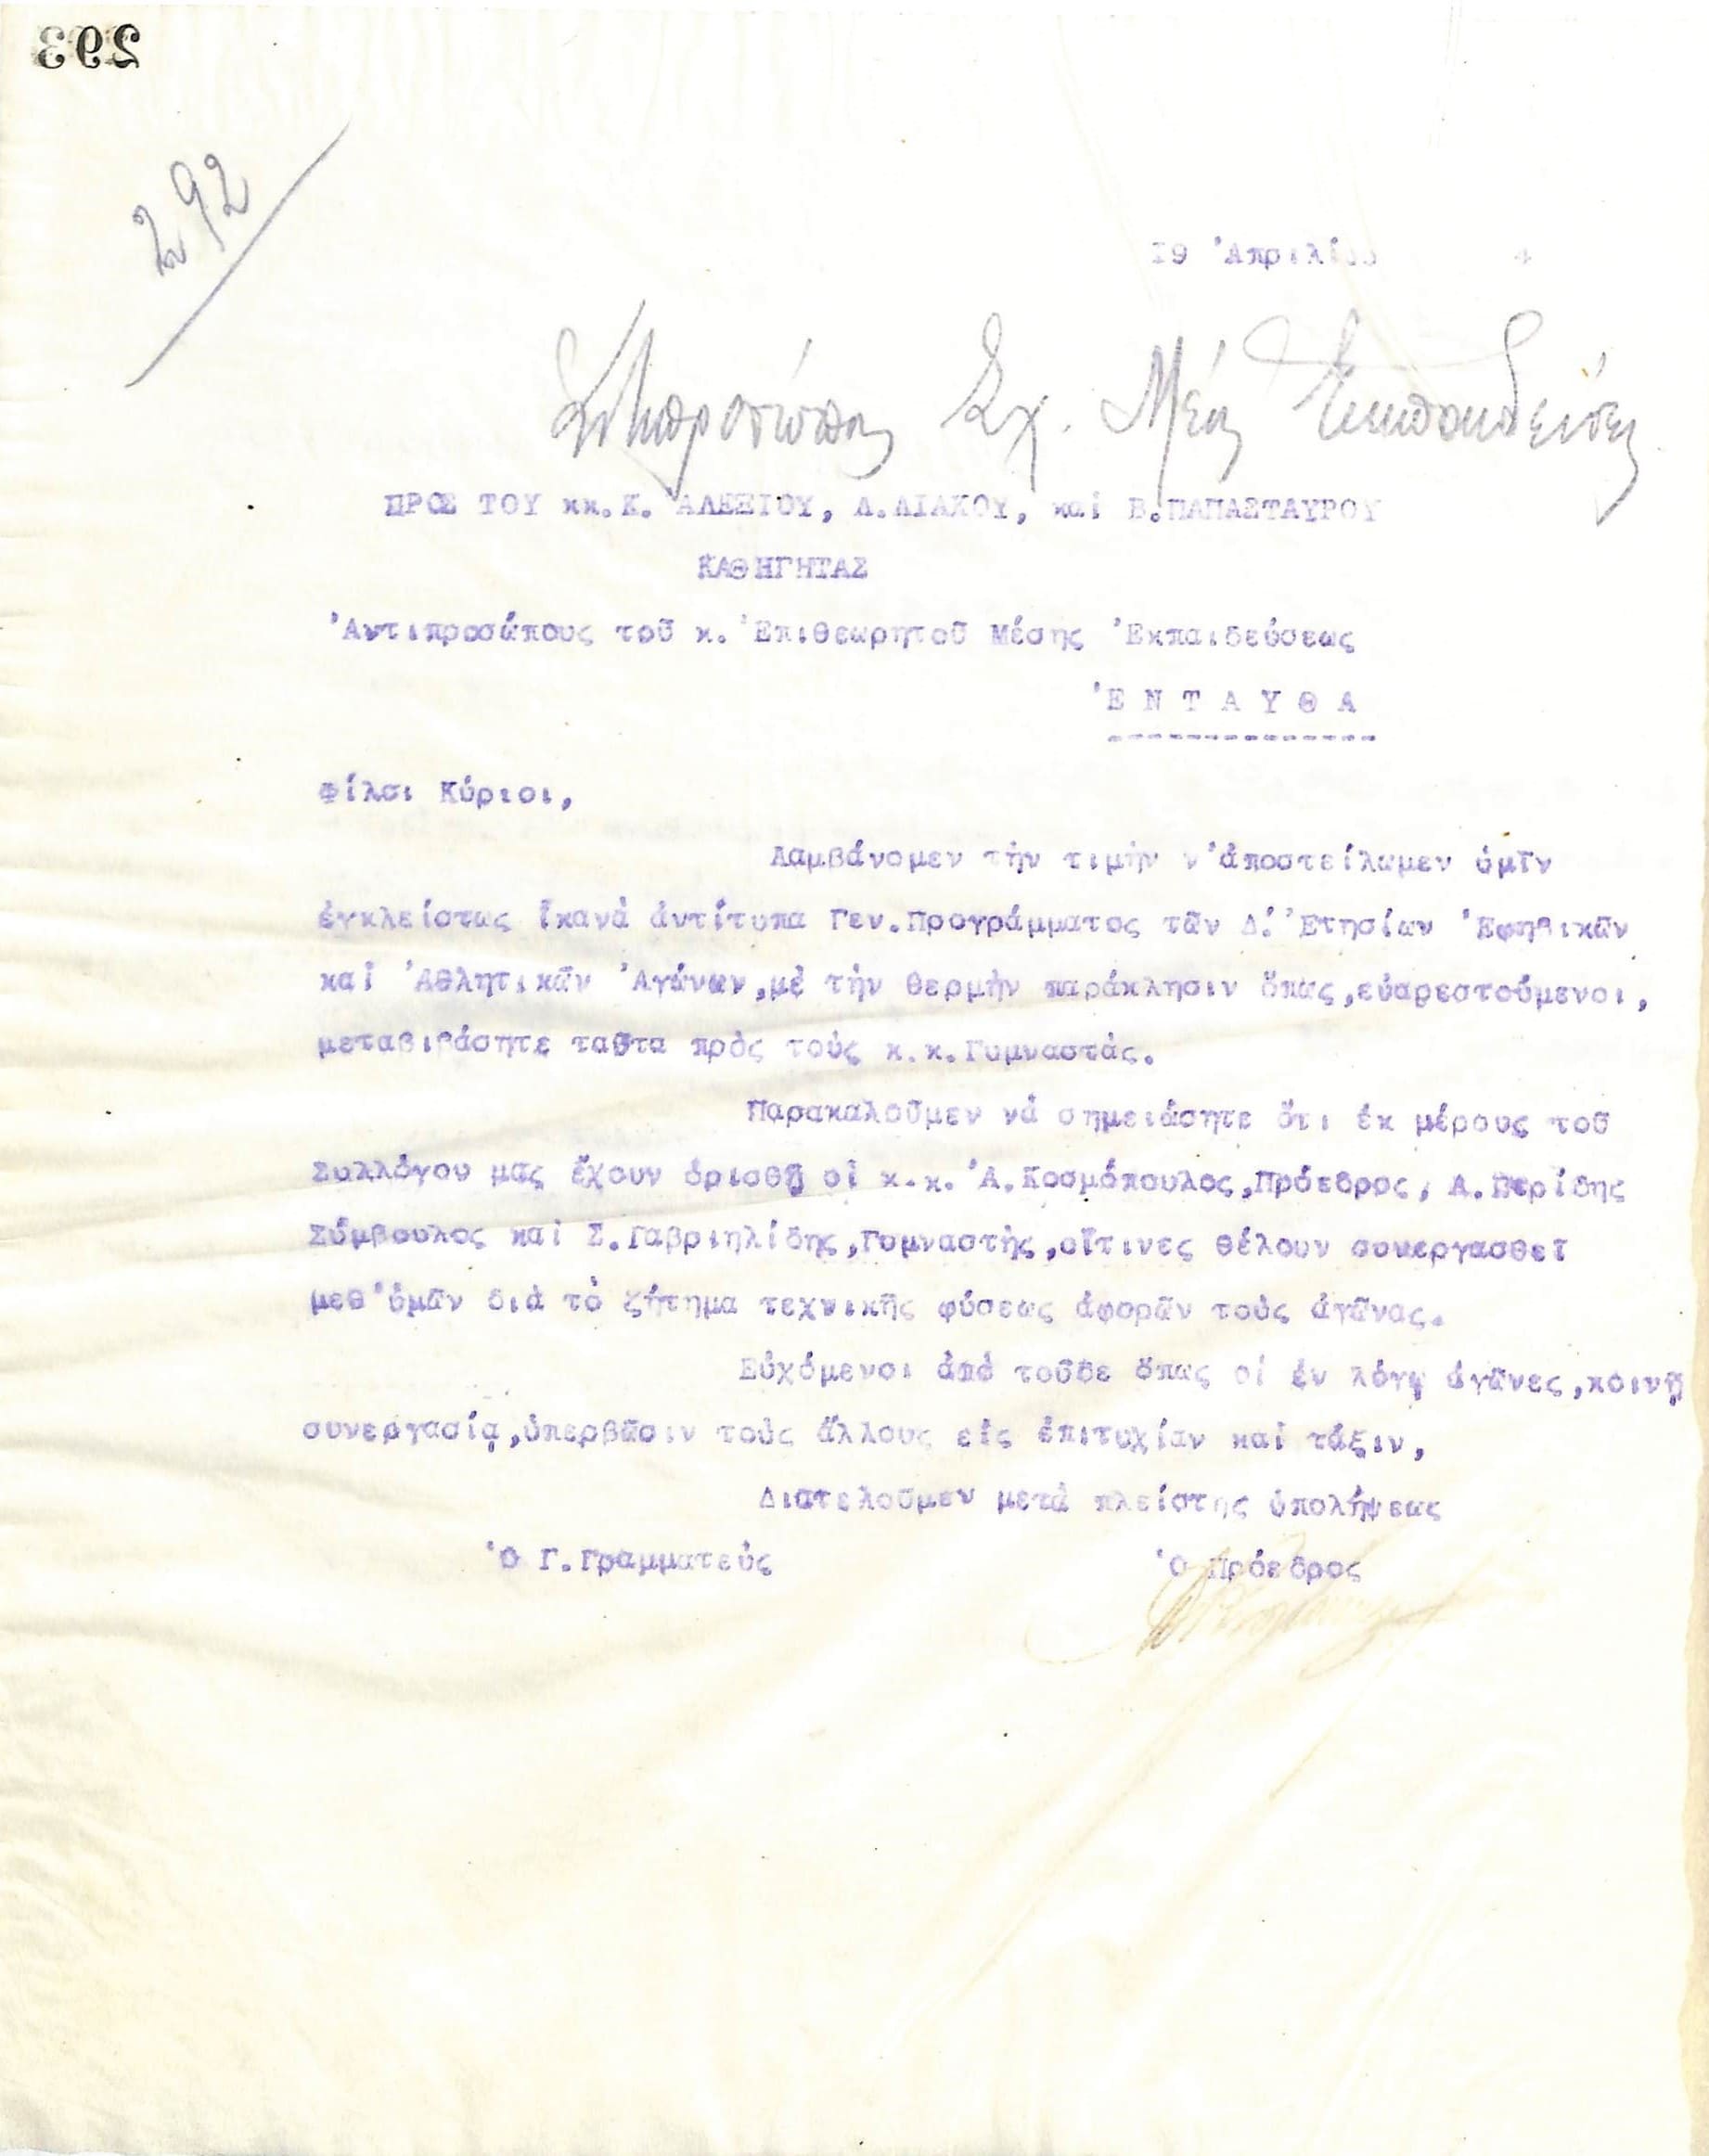 293
292
19 Ἀπριλίου 4
Σχ. Μέσης Ἐκπαιδεύσεως
ΠΡΟΣ ΤΟΥ κκ.Κ. ἈΛΕΞΙΟΥ, Δ.ΔΙΑΚΟΥ, καί Β.ΠΑΠΑΣΤΑΥΡΟΥ
ΚΑΘΗΓΗΤΑΣ
Ἀντιπροσώπους τοῦ κ. Ἐπιθεωρητοῦ Μέσης Ἐκπαιδεύσεως
ἘΝΤΑΥΘΑ
Φίλοι Κύριοι,
Λαμβάνομεν τήν τιμήν ν'ἀποστείλωμεν ὑμῖν
ἐγκλείστως ἱκανά ἀντίτυπα Γεν.Προγράμματος τῶν Δ.' Ἐτησίων Ἐφηβικῶν
καί Ἀθλητικῶν Ἀγώνων,μέ τήν θερμήν παράκλησιν ὅπως,εὐαρεστούμενοι,
μεταβιβάσητε ταῦτα πρός τούς κ.κ.Γυμναστάς.
Παρακαλοῦμεν νά σημειώσητε ὅτι ἐκ μέρους τοῦ
Συλλόγου μας ἔχουν ὁρισθῇ οἱ κ.κ. Ἀ.Κοσμόπουλος,Πρόεδρος, Α.Περίδης
Σύμβουλος καί Σ.Γαβριηλίδης,Γυμναστής,οἵτινες θέλουν συνεργασθεῖ
μεθ'ὑμῶν διά τό ζήτημα τεχνικῆς φύσεως ἀφορῶν τούς ἀγῶνας.
Εὐχόμενοι ἀπό τοῦδε ὅπως οἱ ἐν λόγῳ ἀγῶνες,κοινῇ
συνεργασίᾳ,ὑπερβῶσιν τούς ἄλλους εἰς ἐπιτυχίαν καί τάξιν,
Διατελοῦμεν μετά πλείστης ὑπολήψεως
Ὁ Γ.Γραμματεύς Ὁ Πρόεδρος